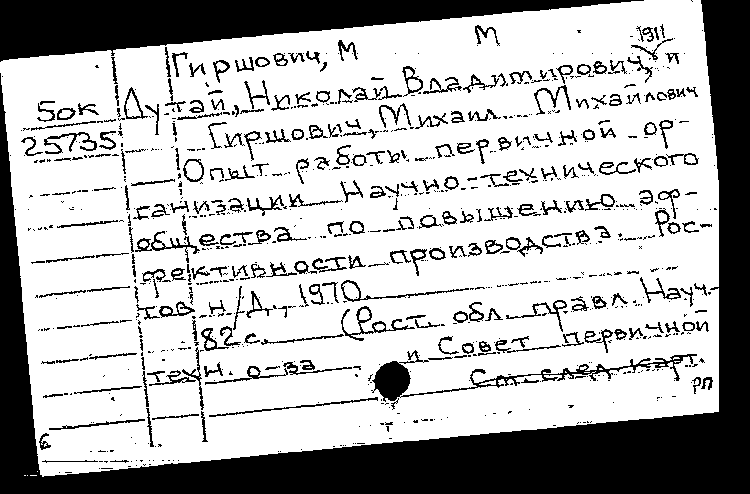 Гиршович, М М
1911
Дутай, Николай Владимирович, и
50к Гиршович, Михаил Михайлович
25735 Опыт работы первичной ор-
ганизации Научно-технического
общества по повышению эф-
фективности производства. Рос-
тов н/Д., 1970.
82 с. (Рост. обл. правл. Науч.-
техн. о-ва и Совет первичной
См. след. карт.
рп
6